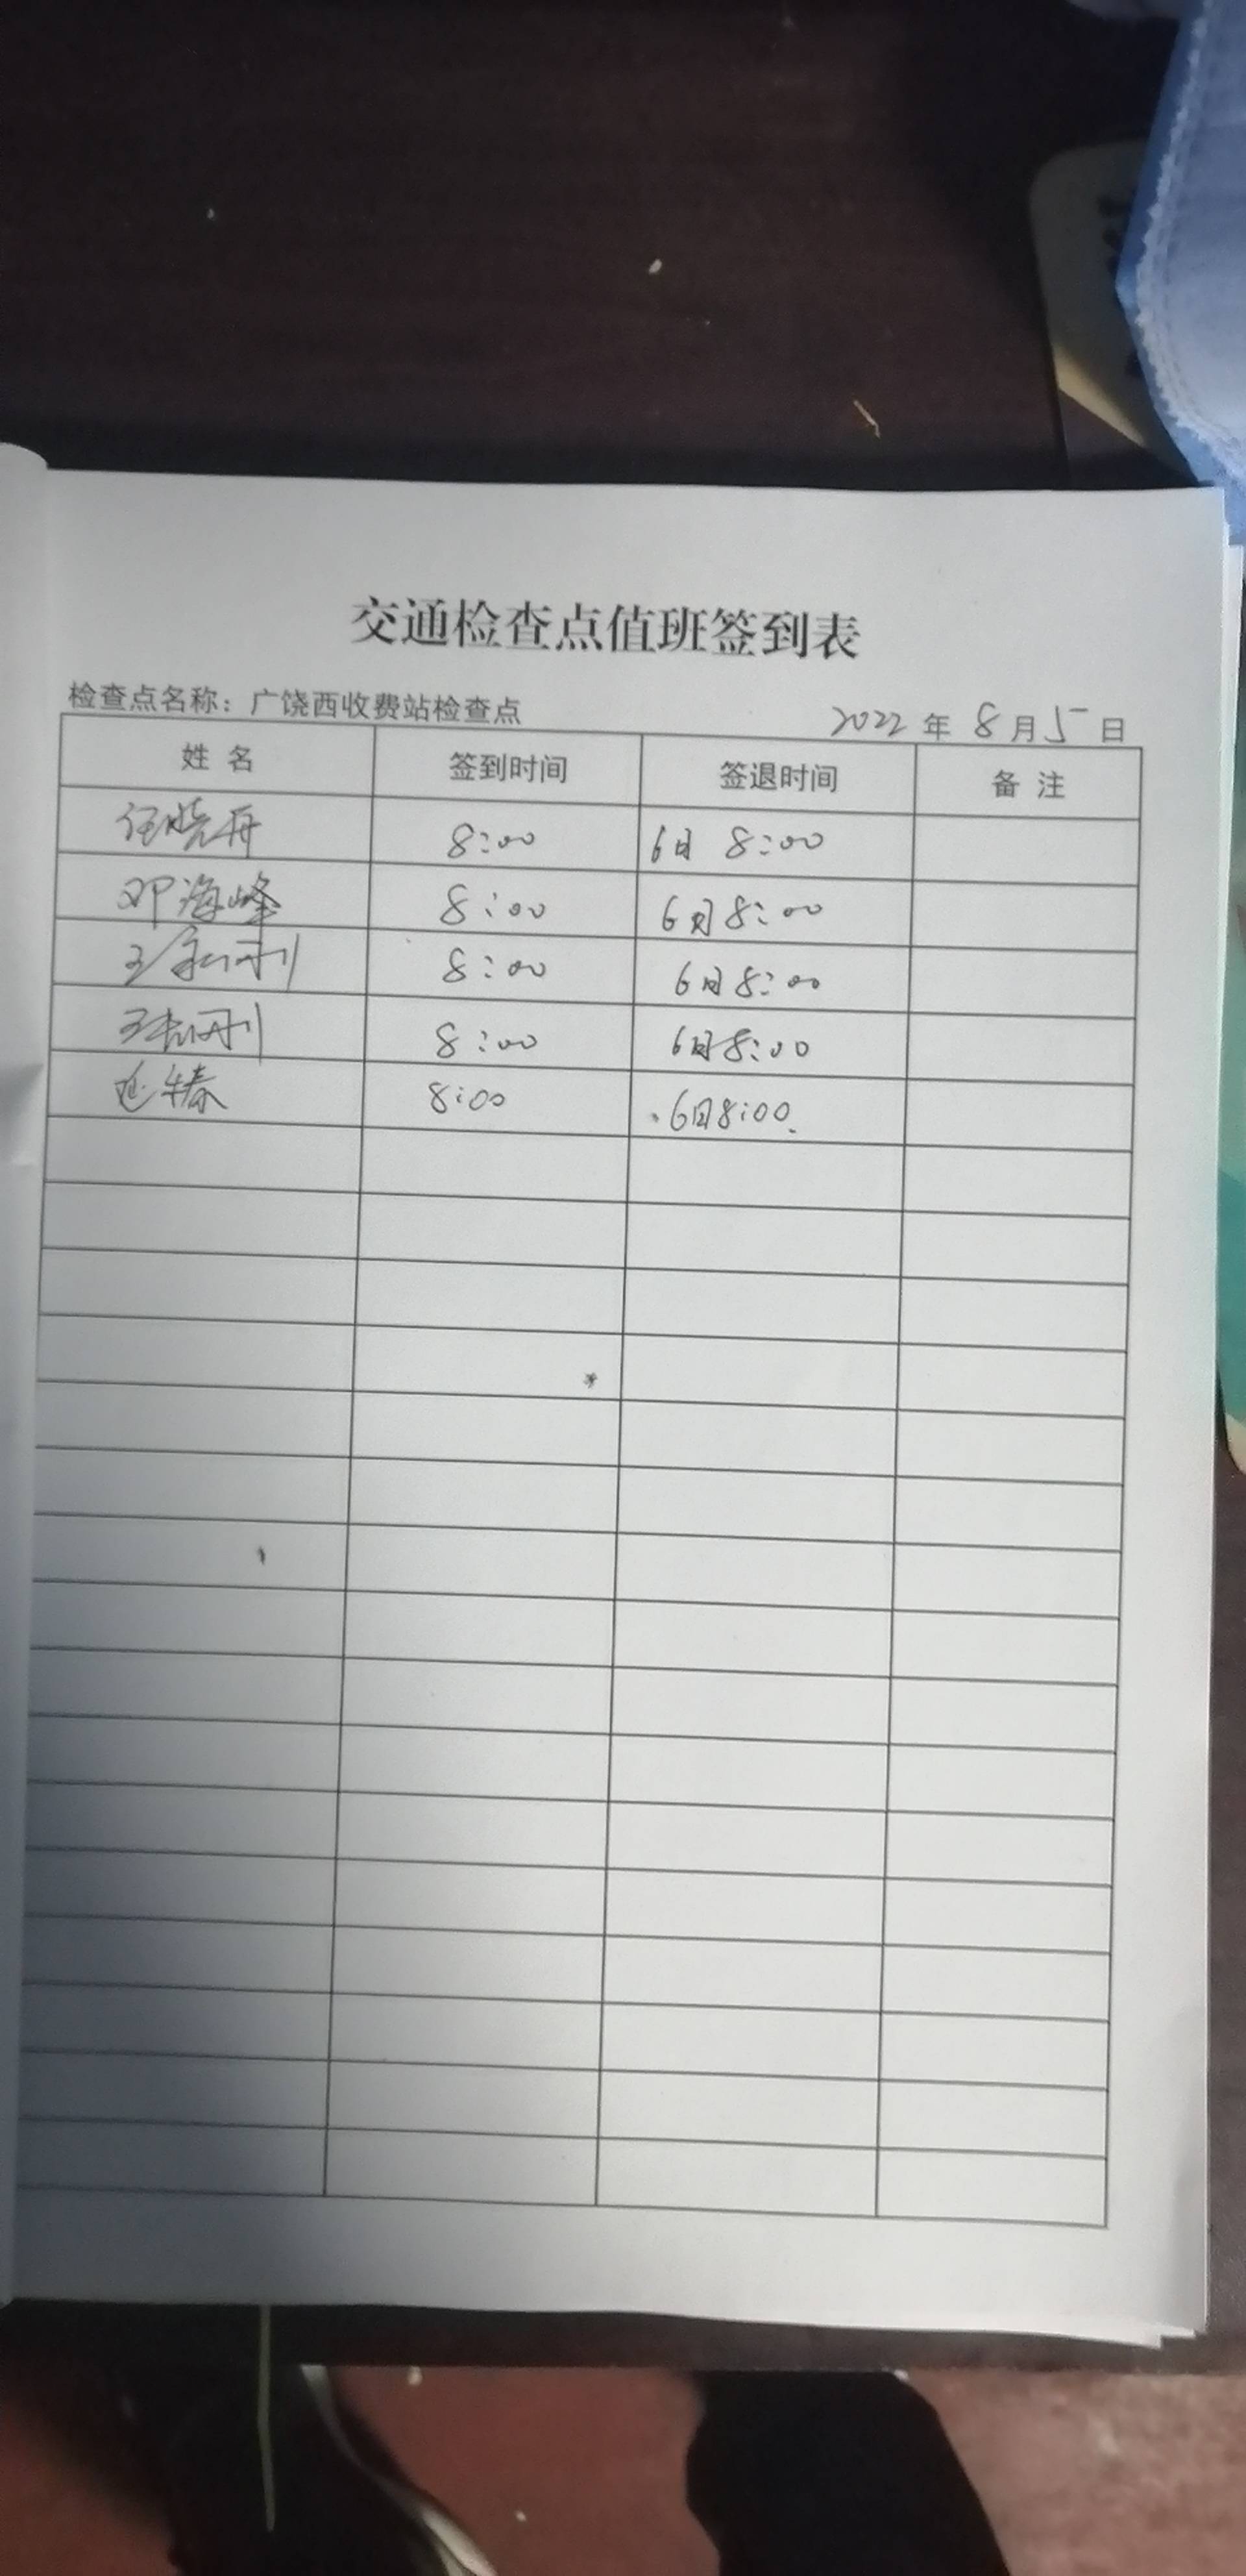 交通检查点值班签到表
检查点名称：广饶西收费站检查点 2022年8月5日
姓名 签到时间 签退时间 备注
任晓丹 8:00 6日 8:00
邓海峰 8:00 6日8:00
8:00 6日8:00
8:00 6日8:00
8:00 6日8:00